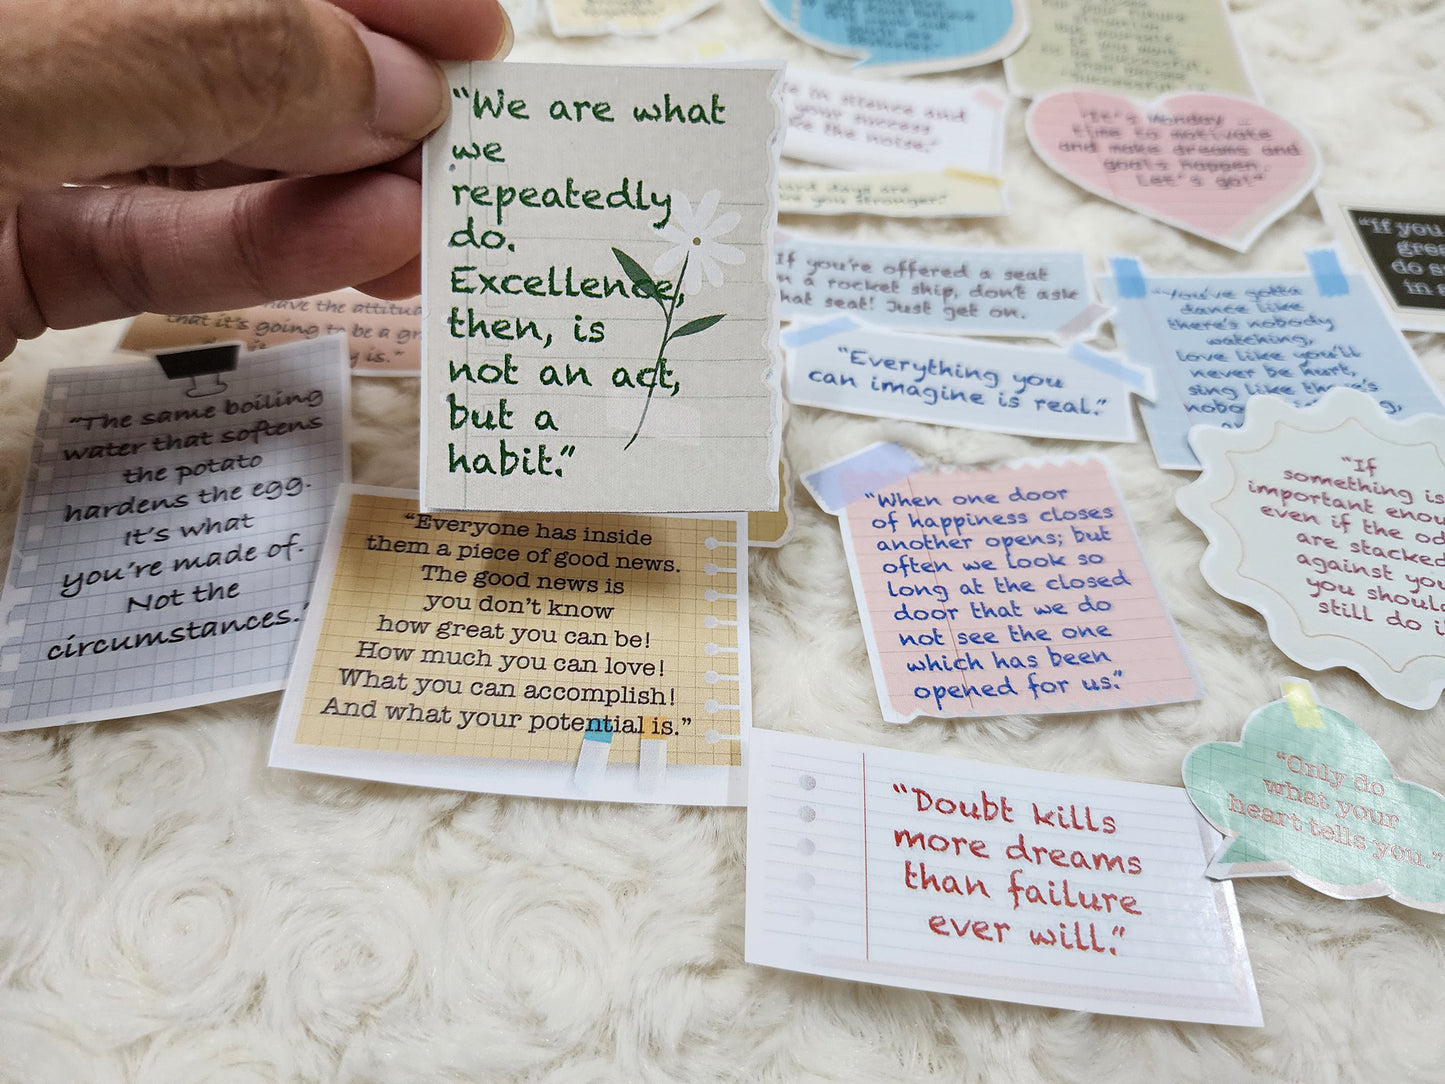 "We are what
we
repeatedly
do.
Excellence,
then, is
not an act,
but a
habit."
have the attitu
that it's going to be a gr
y is."
"The same boiling
water that softens
the potato
hardens the egg.
It's what
you're made of.
Not the
circumstances."
"Everyone has inside
them a piece of good news.
The good news is
you don't know
how great you can be!
How much you can love!
What you can accomplish!
And what your potential is."
in silence and
your success
be the noise."
hard days are
you stronger."
"It's Monday ...
time to motivate
and make dreams and
goals happen.
Let's go!"
If you're offered a seat
n a rocket ship, don't ask
hat seat! Just get on.
"Everything you
can imagine is real."
"You've gotta
dance like
there's nobody
watching,
love like you'll
never be hurt,
sing like there's
nobo
"If you
grea
do s
in s
"When one door
of happiness closes
another opens; but
often we look so
long at the closed
door that we do
not see the one
which has been
opened for us."
"If
something is
important enou
even if the od
are stacked
against you
you shoul
still do i
"Only do
what your
heart tells you."
"Doubt kills
more dreams
than failure
ever will."